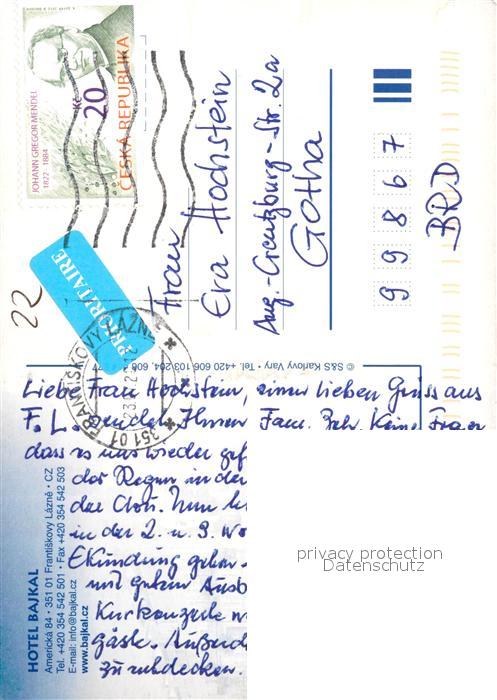 JOHANN GREGOR MENDEL
1822 - 1884
Kč
20
ČESKÁ REPUBLIKA
PRIORITAIRE
22
FRANTIŠKOVY LÁZNĚ
351 01
Frau
Eva Hochstein
Aug.-Creutzburg-Str. 2a
Gotha
99867
BRD
© S&S Karlovy Vary • Tel. +420 606 103 204, 606
Liebe Frau Hochstein, einen lieben Gruss aus
F. L. senden Ihnen Fam.
dass es uns wieder gef
der Regen in der
das Ihnen. Nun
in der 2. u. 3. Wo
Erkundung gehen
und gutem Ausb
Kurkonzerte
gäste. Außerd
zu entdecken.
HOTEL BAJKAL
Americká 84 • 351 01 Františkovy Lázně • CZ
Tel. +420 354 542 501 • Fax +420 354 542 503
E-mail: info@bajkal.cz
www.bajkal.cz
privacy protection
Datenschutz